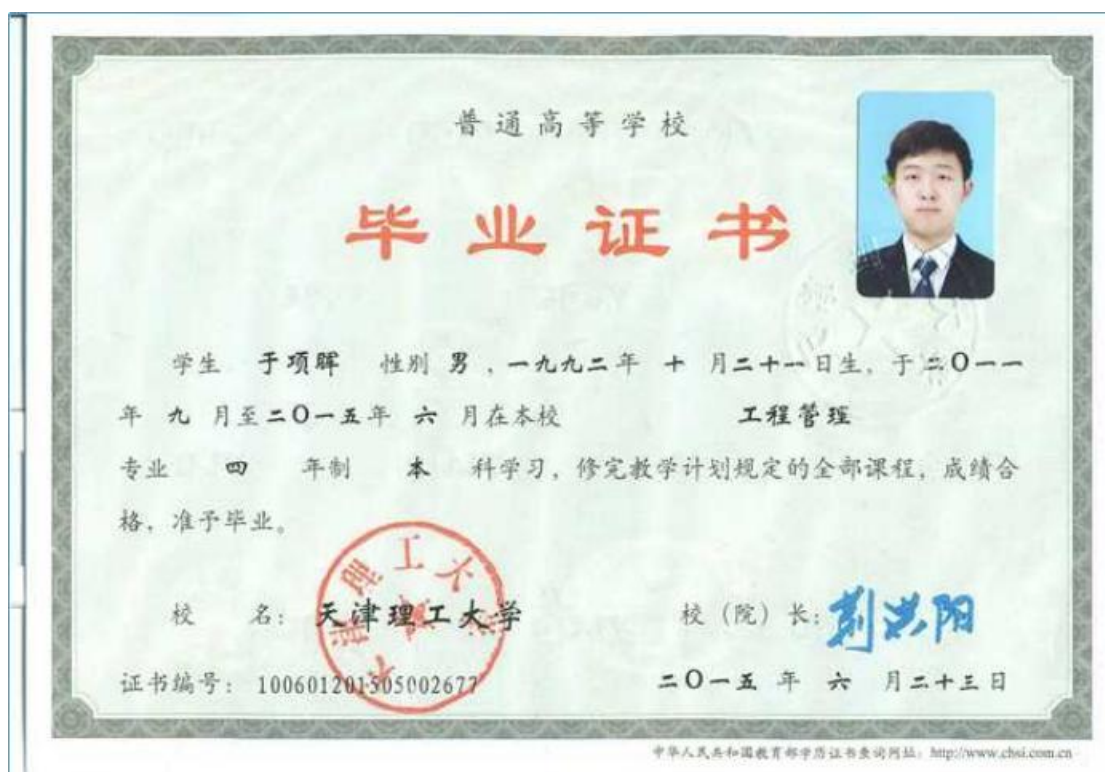 普通高等学校
毕业证书
学生 于项晖 性别 男，一九九二年 十 月二十一日生，于二〇一一
年 九 月至二〇一五年 六 月在本校 工程管理
专业 四 年制 本 科学习，修完教学计划规定的全部课程，成绩合
格，准予毕业。
校 名：天津理工大学
校（院）长：荆洪阳
证书编号：100601201505002677
二〇一五 年 六 月二十三日
中华人民共和国教育部学历证书查询网址：http://www.chsi.com.cn